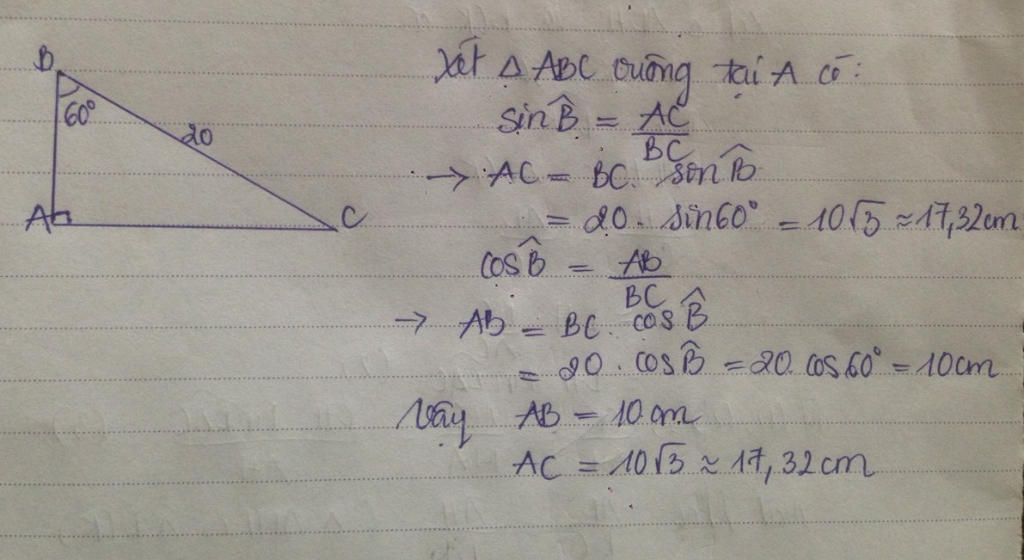 B
60°
20
A
C
Xét Δ ABC vuông tại A có:
sin B̂ = AC/BC
→ AC = BC. sin B̂
= 20. sin60° = 10√3 ≈ 17,32cm
cos B̂ = AB/BC
→ AB = BC. cos B̂
= 20. cos B̂ = 20. cos60° = 10cm
Vậy AB = 10cm
AC = 10√3 ≈ 17,32cm